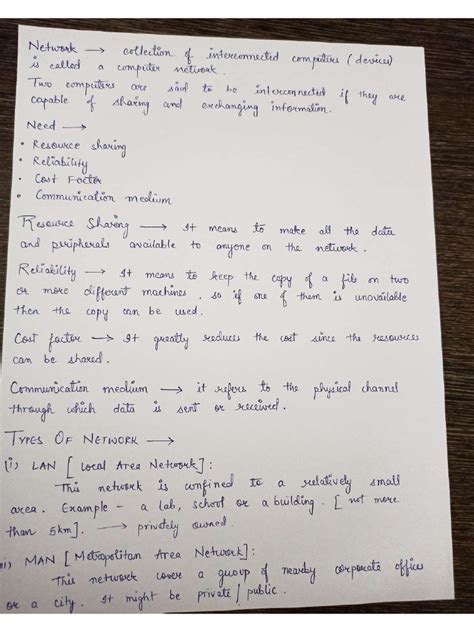 Network → collection of interconnected computers (devices)
is called a computer network.
Two computers are said to be interconnected if they are
capable of sharing and exchanging information.
Need →
• Resource sharing
• Reliability
• Cost Factor
• Communication medium
Resource Sharing → It means to make all the data
and peripherals available to anyone on the network.
Reliability → It means to keep the copy of a file on two
or more different machines, so if one of them is unavailable
then the copy can be used.
Cost factor → It greatly reduces the cost since the resources
can be shared.
Communication medium → it refers to the physical channel
through which data is sent or received.
TYPES OF NETWORK →
(i) LAN [Local Area Network]:
This network is confined to a relatively small
area. Example - a lab, school or a building. [not more
than 5km]. → privately owned.
ii) MAN [Metropolitan Area Network]:
This network cover a group of nearby corporate offices
or a city. It might be private/public.